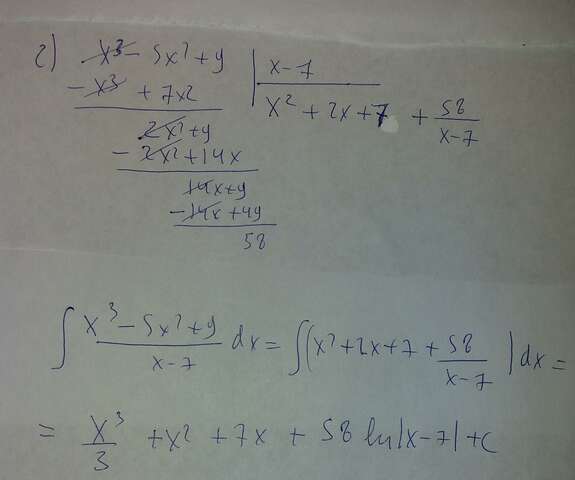 г) x³ - 5x² + 9 | x-7
- x³ + 7x² x² + 2x + 7 + 58/(x-7)
2x² + 9
- 2x² + 14x
14x + 9
- 14x + 49
58
∫ (x³ - 5x² + 9)/(x-7) dx = ∫(x² + 2x + 7 + 58/(x-7)) dx =
= x³/3 + x² + 7x + 58 ln|x-7| + c